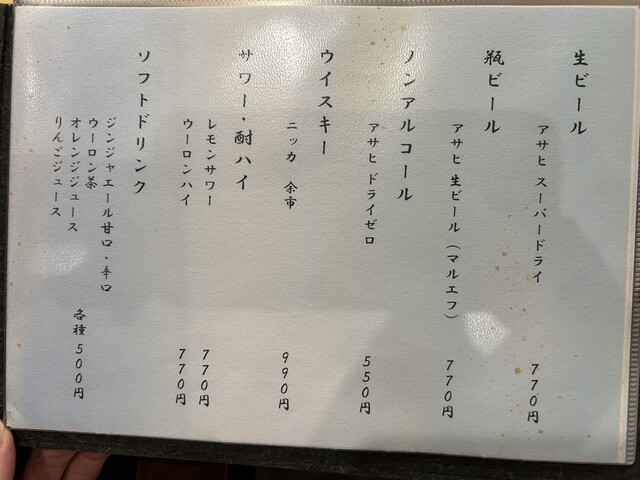 生ビール
アサヒ スーパードライ 770円
瓶ビール
アサヒ 生ビール（マルエフ） 770円
ノンアルコール
アサヒ ドライゼロ 550円
ウイスキー
ニッカ 余市 990円
サワー・酎ハイ
レモンサワー 770円
ウーロンハイ 770円
ソフトドリンク
ジンジャエール甘口・辛口
ウーロン茶
オレンジジュース
りんごジュース
各種 500円